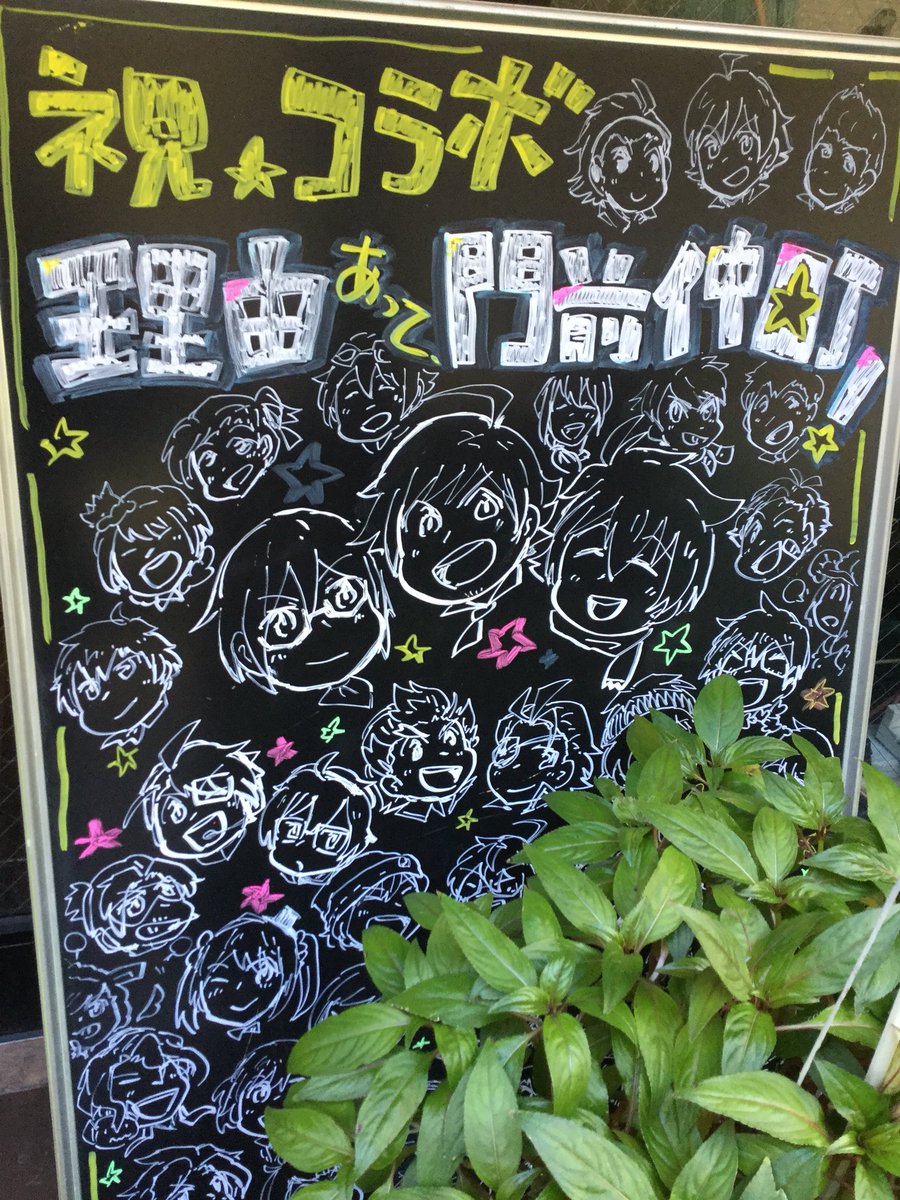 祝☆コラボ
理由あって、門前仲町!